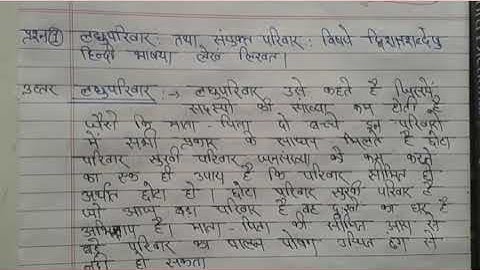 प्रश्न(1) लघुपरिवार: तथा संयुक्त परिवार: विषये द्विशतशब्देषु
हिन्दी भाषया लेख लिखत।
उत्तर लघुपरिवार :→ लघुपरिवार उसे कहते है जिसमें
सदस्यो की संख्या कम होती है
जैसे कि माता-पिता दो बच्चे इन परिवारो
में सभी प्रकार के साधन मिलते है छोटा
परिवार सुखी परिवार जनसंख्या को कम करने
का एक ही उपाय है कि परिवार सीमित हो
अर्थात छोटा हो। छोटा परिवार सुखी परिवार है
जो आप बडा परिवार है वह दुखो का घर है
अभिशाप है। माता-पिता की सीमित आय से
बडे परिवार का पालन पोषण उचित ढंग से
नही हो सकता।